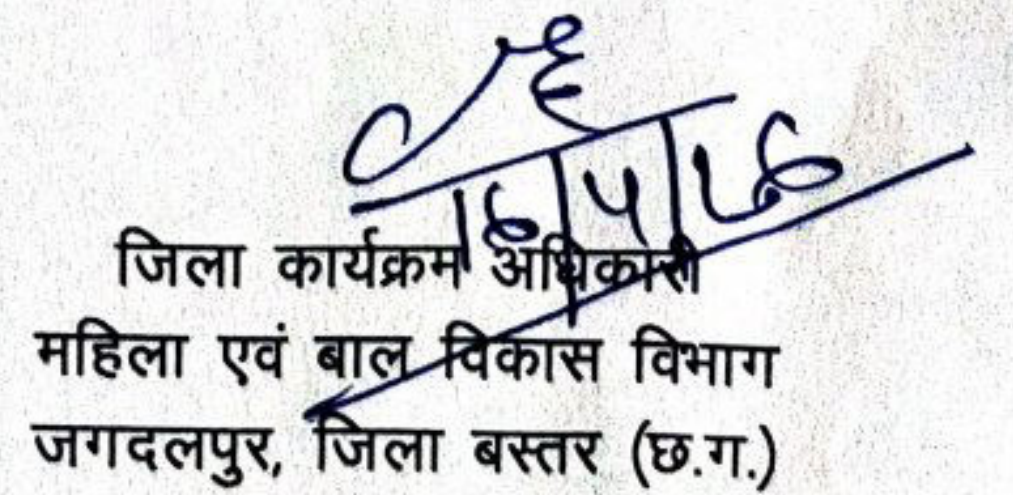 जिला कार्यक्रम अधिकारी
महिला एवं बाल विकास विभाग
जगदलपुर, जिला बस्तर (छ.ग.)